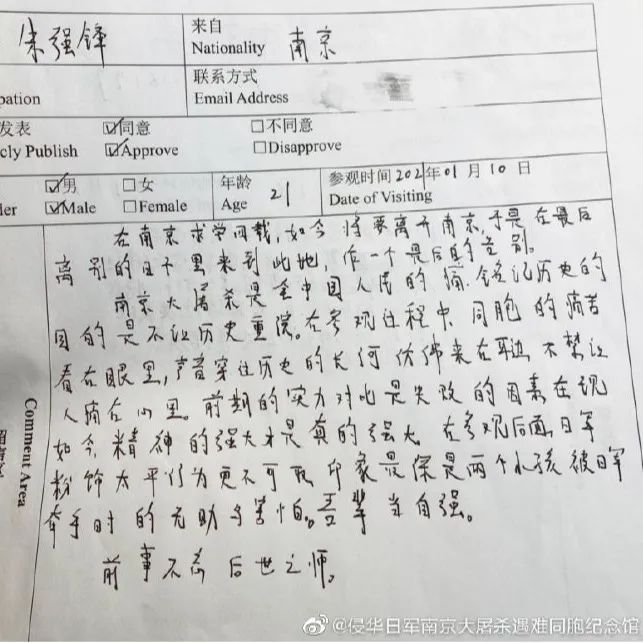 宋强锋
来自
Nationality 南京
联系方式
pation Email Address
发表 同意 不同意
cly Publish Approve Disapprove
男 女 年龄 21 参观时间2021年01月10日
der Male Female Age Date of Visiting
在南京求学四载,如今将要离开南京,于是在最后
离别的日子里来到此地,作一个最后的告别。
南京大屠杀是全中国人民的痛,铭记历史的
目的是不让历史重演。在参观过程中,同胞的痛苦
看在眼里,声音穿过历史的长河仿佛来在耳边,不禁让
人痛在心里。前期的实力对比是失败的因素在现
如今,精神的强大才是真的强大。在参观后面,日军
粉饰太平行为更不可取,印象最深是两个小孩被日军
牵手时的无助与害怕。吾辈当自强。
前事不忘后世之师。
Comment Area
@侵华日军南京大屠杀遇难同胞纪念馆